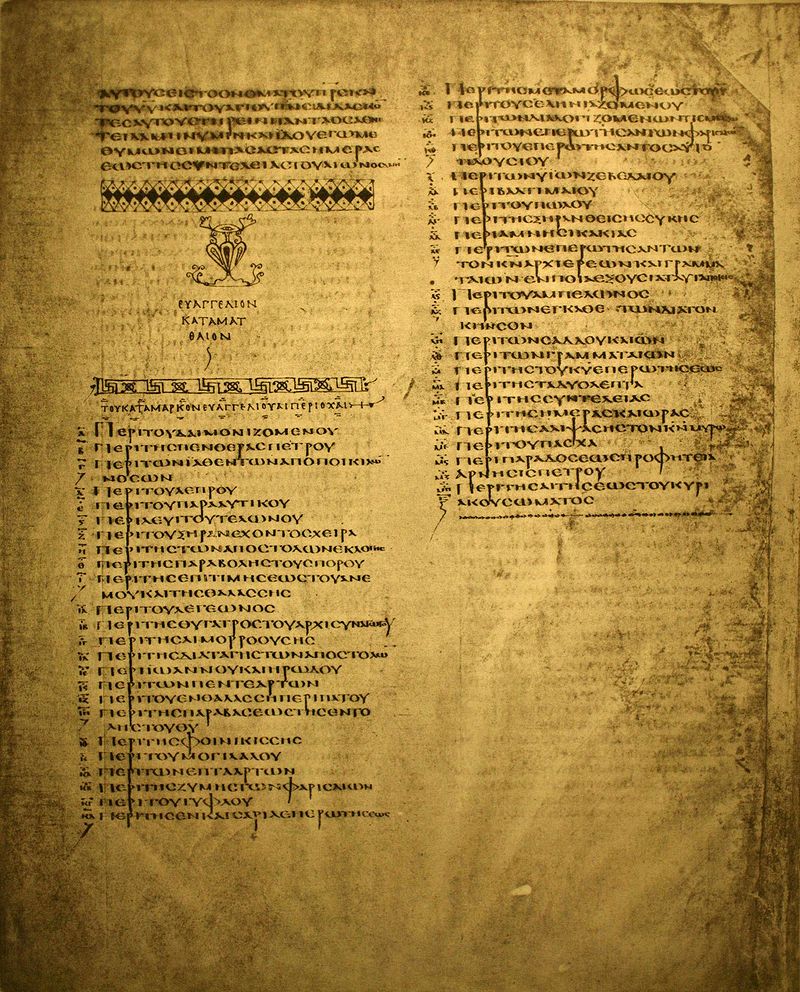 ΑΥΤΟΥϹΕΙϹΤΟΟΝΟΜΑΤΟΥΠΡϹΚΑΙ
ΤΟΥΥΥΚΑΙΤΟΥΑΓΙΟΥΠΝϹΔΙΔΑϹΚΟ
ΤΕϹΑΥΤΟΥϹΤΗΡΕΙΝΠΑΝΤΑΟϹΑΕΝ
ΤΕΙΛΑΜΗΝΥΜΙΝΚΑΙΙΔΟΥΕΓΩΜΕ
ΘΥΜΩΝΕΙΜΙΠΑϹΑϹΤΑϹΗΜΕΡΑϹ
ΕΩϹΤΗϹϹΥΝΤΕΛΕΙΑϹΤΟΥΑΙΩΝΟϹ
ΕΥΑΓΓΕΛΙΟΝ
ΚΑΤΑΜΑΤ
ΘΑΙΟΝ
ΤΟΥΚΑΤΑΜΑΡΚΟΝΕΥΑΓΓΕΛΙΟΥΑΙΠΕΡΙΟΧΑΙ
Α ΠΕΡΙΤΟΥΔΑΙΜΟΝΙΖΟΜΕΝΟΥ
Β ΠΕΡΙΤΗϹΠΕΝΘΕΡΑϹΠΕΤΡΟΥ
Γ ΠΕΡΙΤΩΝΙΑΘΕΝΤΩΝΑΠΟΠΟΙΚΙΛΩ
ΝΟϹΩΝ
Δ ΠΕΡΙΤΟΥΛΕΠΡΟΥ
Ε ΠΕΡΙΤΟΥΠΑΡΑΛΥΤΙΚΟΥ
Ϛ ΠΕΡΙΛΕΥΙΤΟΥΤΕΛΩΝΟΥ
Ζ ΠΕΡΙΤΟΥΞΗΡΑΝΕΧΟΝΤΟϹΧΕΙΡΑ
Η ΠΕΡΙΤΗϹΤΩΝΑΠΟϹΤΟΛΩΝΕΚΛΟΓΗϹ
Θ ΠΕΡΙΤΗϹΠΑΡΑΒΟΛΗϹΤΟΥϹΠΟΡΟΥ
Ι ΠΕΡΙΤΗϹΕΠΙΤΙΜΗϹΕΩϹΤΟΥΑΝΕ
ΜΟΥΚΑΙΤΗϹΘΑΛΑϹϹΗϹ
ΙΑ ΠΕΡΙΤΟΥΛΕΓΕΩΝΟϹ
ΙΒ ΠΕΡΙΤΗϹΘΥΓΑΤΡΟϹΤΟΥΑΡΧΙϹΥΝΑΓΩΓΟΥ
ΙΓ ΠΕΡΙΤΗϹΑΙΜΟΡΡΟΟΥϹΗϹ
ΙΔ ΠΕΡΙΤΗϹΔΙΑΤΑΓΗϹΤΩΝΑΠΟϹΤΟΛΩ
ΙΕ ΠΕΡΙΙΩΑΝΝΟΥΚΑΙΗΡΩΔΟΥ
ΙϚ ΠΕΡΙΤΩΝΠΕΝΤΕΑΡΤΩΝ
ΙΖ ΠΕΡΙΤΟΥΕΝΘΑΛΑϹϹΗΠΕΡΙΠΑΤΟΥ
ΙΗ ΠΕΡΙΤΗϹΠΑΡΑΒΑϹΕΩϹΤΗϹΕΝΤΟ
ΛΗϹΤΟΥΘΥ
ΙΘ ΠΕΡΙΤΗϹΦΟΙΝΙΚΙϹϹΗϹ
Κ ΠΕΡΙΤΟΥΜΟΓΙΛΑΛΟΥ
ΚΑ ΠΕΡΙΤΩΝΕΠΤΑΑΡΤΩΝ
ΚΒ ΠΕΡΙΤΗϹΖΥΜΗϹΤΩΝΦΑΡΙϹΑΙΩΝ
ΚΓ ΠΕΡΙΤΟΥΤΥΦΛΟΥ
ΚΔ ΠΕΡΙΤΗϹΕΝΚΑΙϹΑΡΙΑΕΠΕΡΩΤΗϹΕΩϹ
ΚΕ ΠΕΡΙΤΗϹΜΕΤΑΜΟΡΦΩϹΕΩϹΤΟΥΙΥ
ΚϚ ΠΕΡΙΤΟΥϹΕΛΗΝΙΑΖΟΜΕΝΟΥ
ΚΖ ΠΕΡΙΤΩΝΔΙΑΛΟΓΙΖΟΜΕΝΩΝΤΙϹΜΕΙΖΩΝ
ΚΗ ΠΕΡΙΤΩΝΕΠΕΡΩΤΗϹΑΝΤΩΝΦΑΡΙϹΑΙΩΝ
ΚΘ ΠΕΡΙΤΟΥΕΠΕΡΩΤΗϹΑΝΤΟϹΑΥΤΟ
ΠΛΟΥϹΙΟΥ
Λ ΠΕΡΙΤΩΝΥΙΩΝΖΕΒΕΔΑΙΟΥ
ΛΑ ΠΕΡΙΒΑΡΤΙΜΑΙΟΥ
ΛΒ ΠΕΡΙΤΟΥΠΩΛΟΥ
ΛΓ ΠΕΡΙΤΗϹΞΗΡΑΝΘΕΙϹΗϹϹΥΚΗϹ
ΛΔ ΠΕΡΙΑΜΝΗϹΙΚΑΚΙΑϹ
ΛΕ ΠΕΡΙΤΩΝΕΠΕΡΩΤΗϹΑΝΤΩΝ
ΤΟΝΚΝΑΡΧΙΕΡΕΩΝΚΑΙΓΡΑΜΜΑ
ΤΑΙΩΝΕΝΠΟΙΑΕΞΟΥϹΙΑΤΑΥΤΑΠΟΙΕΙϹ
ΛϚ ΠΕΡΙΤΟΥΑΜΠΕΛΩΝΟϹ
ΛΖ ΠΕΡΙΤΩΝΕΓΚΑΘΕΤΩΝΔΙΑΤΟΝ
ΚΗΝϹΟΝ
ΛΗ ΠΕΡΙΤΩΝϹΑΔΔΟΥΚΑΙΩΝ
ΛΘ ΠΕΡΙΤΩΝΓΡΑΜΜΑΤΑΙΩΝ
Μ ΠΕΡΙΤΗϹΤΟΥΚΥΕΠΕΡΩΤΗϹΕΩϹ
ΜΑ ΠΕΡΙΤΗϹΤΑΔΥΟΛΕΠΤΑ
ΜΒ ΠΕΡΙΤΗϹϹΥΝΤΕΛΕΙΑϹ
ΜΓ ΠΕΡΙΤΗϹΗΜΕΡΑϹΚΑΙΩΡΑϹ
ΜΔ ΠΕΡΙΤΗϹΑΛΙΨΑϹΗϹΤΟΝΚΝΜΥΡΩ
ΜΕ ΠΕΡΙΤΟΥΠΑϹΧΑ
ΜϚ ΠΕΡΙΠΑΡΑΔΟϹΕΩϹΠΡΟΦΗΤΕΙΑ
ΜΖ ΑΡΝΗϹΙϹΠΕΤΡΟΥ
ΜΗ ΠΕΡΙΤΗϹΑΙΤΗϹΕΩϹΤΟΥΚΥΡΙ
ΑΚΟΥϹΩΜΑΤΟϹ